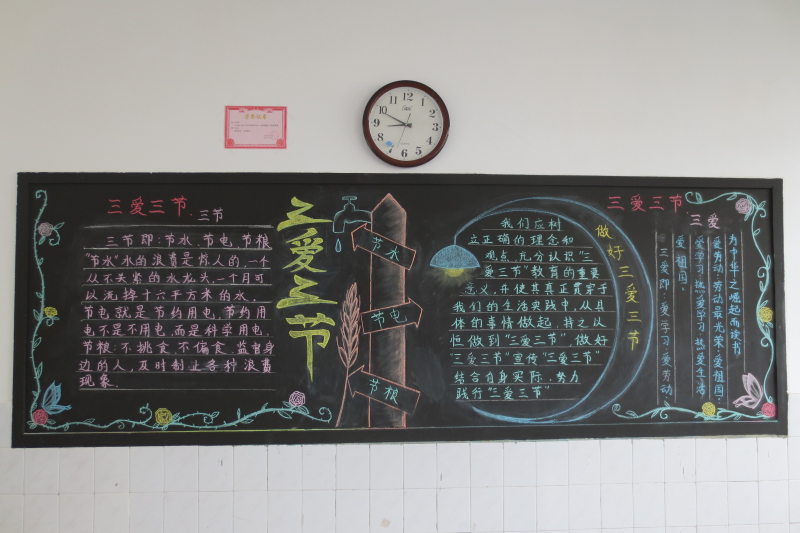 三爱三节
·三节
三节即:节水、节电、节粮
"节水"水的浪费是惊人的,一个
从不关紧的水龙头,一个月可
以流掉十六平方米的水,
节电就是节约用电,节约用
电不是不用电,而是科学用电,
节粮:不挑食、不偏食、监督身
边的人,及时制止各种浪费
现象.
三爱三节
节水
节电
节粮
我们应树
立正确的理念和
观点,充分认识"三
爱三节"教育的重要
意义,并使其真正贯穿于
我们的生活实践中,从具
体的事情做起,持之以
恒做到"三爱三节",做好
"三爱三节"宣传"三爱三节"
结合自身实际,努力
践行"三爱三节"
做好三爱三节
三爱三节
·三爱
为中华之崛起而读书
爱劳动:劳动最光荣、爱祖国:
爱学习:热爱学习、热爱生活
爱祖国.
三爱即:爱学习、爱劳动、
12
1
2
3
4
5
6
8
9
10
11